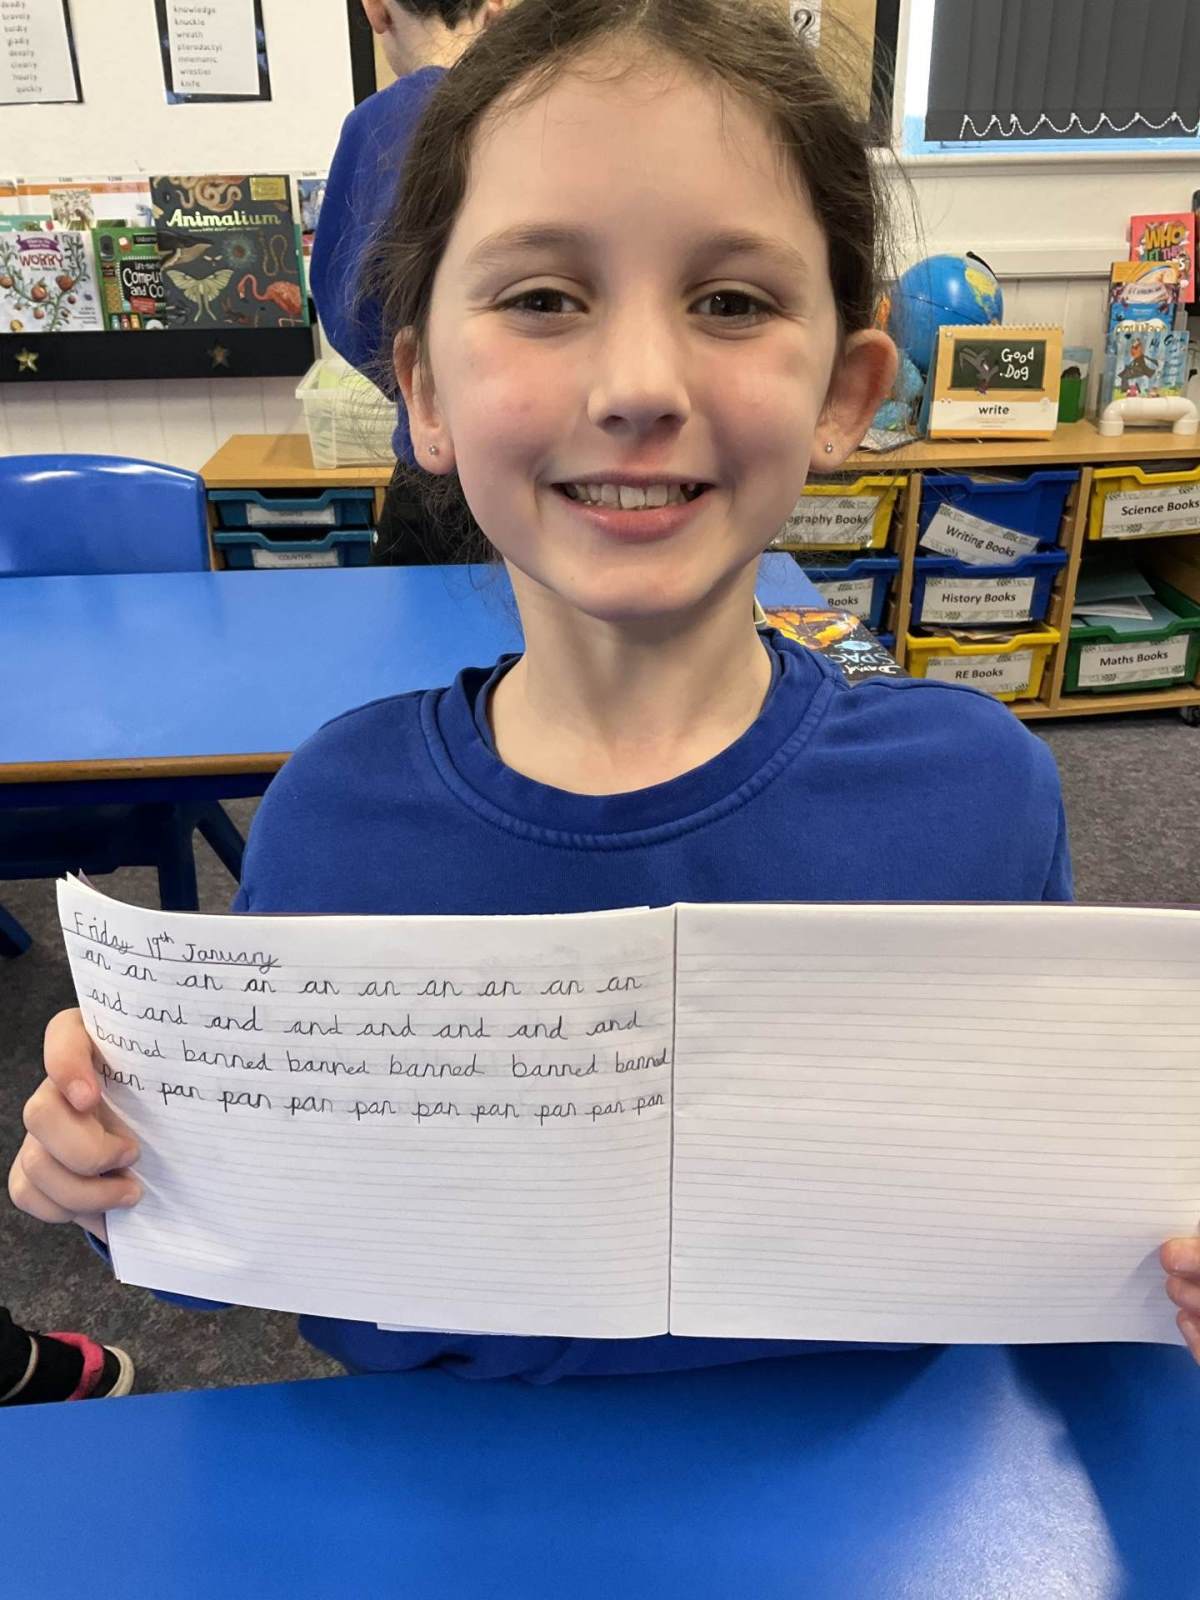 deadly
bravely
boldly
gladly
deeply
clearly
hourly
quickly
knowledge
knuckle
wreath
pterodactyl
mnemonic
wrestler
knife
?
Animalium
WORRY
Good
Dog
write
WHO
LET THE
COUNTERS
Geography Books
Writing Books
Science Books
Books
History Books
RE Books
Maths Books
SPACE
Friday 19th January
an an an an an an an an an an
and and and and and and and and
banned banned banned banned banned banned
pan pan pan pan pan pan pan pan pan pan